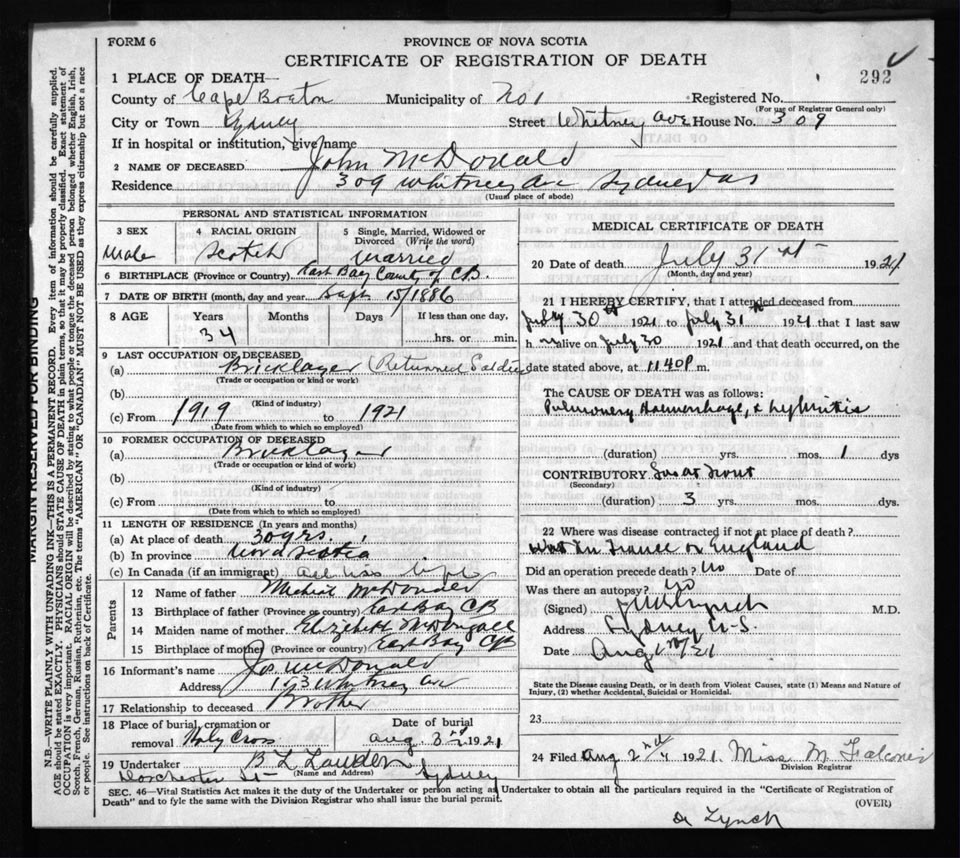 FORM 6
PROVINCE OF NOVA SCOTIA
CERTIFICATE OF REGISTRATION OF DEATH
292
1 PLACE OF DEATH—
County of Cape Breton Municipality of No 1 Registered No.
(For use of Registrar General only)
City or Town Sydney Street Whitney Ave House No. 309
If in hospital or institution, give name
2 NAME OF DECEASED John McDonald
Residence 309 Whitney Ave Sydney NS
(Usual place of abode)
PERSONAL AND STATISTICAL INFORMATION
3 SEX 4 RACIAL ORIGIN 5 Single, Married, Widowed or Divorced (Write the word)
Male Scotch Married
6 BIRTHPLACE (Province or Country) East Bay County of C.B.
7 DATE OF BIRTH (month, day and year) Sept 15/1886
8 AGE Years Months Days If less than one day,
34 hrs. or min.
9 LAST OCCUPATION OF DECEASED
(a) Bricklayer (Returned Soldier
(Trade or occupation or kind or work)
(b)
(Kind of industry)
(c) From 1919 to 1921
(Date from which to which so employed)
10 FORMER OCCUPATION OF DECEASED
(a) Bricklayer
(Trade or occupation or kind of work)
(b)
(Kind of industry)
(c) From to
(Date from which to which so employed)
11 LENGTH OF RESIDENCE (In years and months)
(a) At place of death 30 yrs.
(b) In province Nova Scotia
(c) In Canada (if an immigrant) all his life
Parents
12 Name of father Michael McDonald
13 Birthplace of father (Province or Country) East Bay CB
14 Maiden name of mother Elizabeth McDougall
15 Birthplace of mother (Province or Country) East Bay CB
16 Informant's name Jos. McDonald
Address 163 Whitney Ave
17 Relationship to deceased Brother
18 Place of burial, cremation or removal Holy Cross
Date of burial
Aug. 3rd 1921
19 Undertaker B L Lauder
(Name and Address)
Dorchester St— Sydney
MEDICAL CERTIFICATE OF DEATH
20 Date of death July 31st 1921
(Month, day and year)
21 I HEREBY CERTIFY, that I attended deceased from
July 30th 1921 to July 31st 1921 that I last saw
h m alive on July 30 1921 and that death occurred, on the
date stated above, at 11.40P m.
The CAUSE OF DEATH was as follows:
Pulmonary Haemorrhage, &
(duration) yrs. mos. 1 dys
CONTRIBUTORY
(Secondary)
(duration) 3 yrs. mos. dys.
22 Where was disease contracted if not at place of death?
in France or England
Did an operation precede death? No Date of
Was there an autopsy? No
(Signed) Lynch M.D.
Address Sydney N.S.
Date Aug 1st/21
State the Disease causing Death, or in death from Violent Causes, state (1) Means and Nature of
Injury, (2) whether Accidental, Suicidal or Homicidal.
23
24 Filed Aug 2nd 1921. Miss M Falconer
Division Registrar
SEC. 46—Vital Statistics Act makes it the duty of the Undertaker or person acting as Undertaker to obtain all the particulars required in the "Certificate of Registration of
Death" and to fyle the same with the Division Registrar who shall issue the burial permit.
(OVER)
Dr Lynch
MARGIN RESERVED FOR BINDING
N.B.—WRITE PLAINLY WITH UNFADING INK—THIS IS A PERMANENT RECORD. Every item of information should be carefully supplied.
AGE should be stated EXACTLY. PHYSICIANS should STATE CAUSE OF DEATH in plain terms, so that it may be properly classified. Exact statement of
OCCUPATION is very important. RACIAL ORIGIN will be described by stating to what people or tongue the deceased person belonged whether English, Irish,
Scotch, French, German, Russian, Ruthenian, etc. The terms "AMERICAN" OR "CANADIAN" MUST NOT BE USED as they express citizenship but not a race
or people. See instructions on back of Certificate.